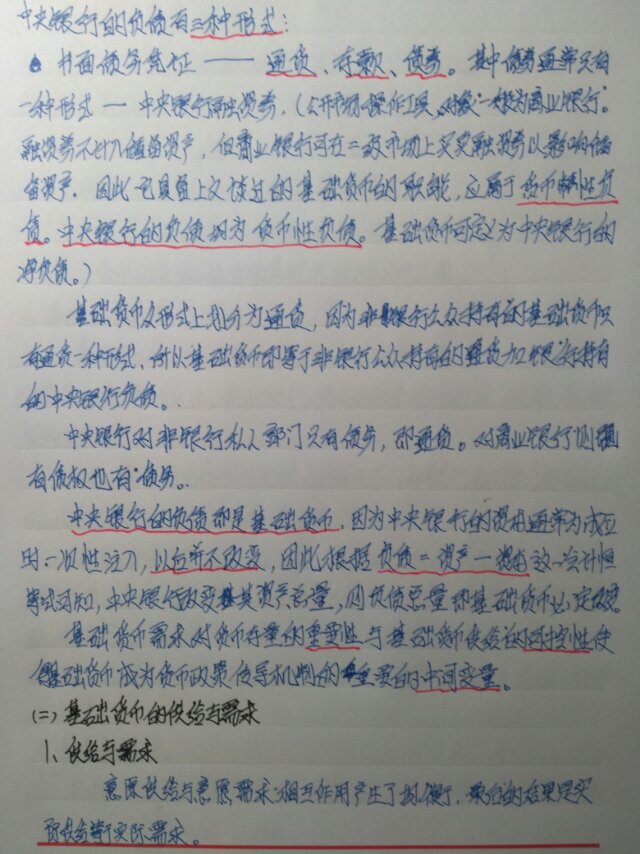 中央银行的负债有三种形式：
书面债务凭证——通货、存款、债券。其中债券通常只有
一种形式—中央银行融资券，（公开市场操作工具，对象一般为商业银行。
融资券不计入储备资产，但商业银行可在二级市场上买卖融资券以影响储
备资产。因此它具备上文谈过的基础货币的职能，应属于货币性负
债。中央银行的负债均为货币性负债。基础货币可定义为中央银行的
净负债。）
基础货币从形式上划分为通货，因为非银行公众持有的基础货币只
有通货一种形式，所以基础货币即等于非银行公众持有的通货加银行持有
的中央银行负债。
中央银行对非银行私人部门只有债务，即通货。对商业银行则
有债权也有债务。
中央银行的负债即是基础货币，因为中央银行的资本通常为成立
时一次性注入，以后并不改变，因此根据负债=资产—资本这一会计恒
等式可知，中央银行改变其资产总量，则负债总量即基础货币必定改变。
基础货币需求对货币存量的重要性与基础货币供给的可控性使
得基础货币成为货币政策传导机制的重要的中间变量。
(二)基础货币的供给与需求
1、供给与需求
意愿供给与意愿需求相互作用产生了均衡，最后的结果是实
际供给等于实际需求。